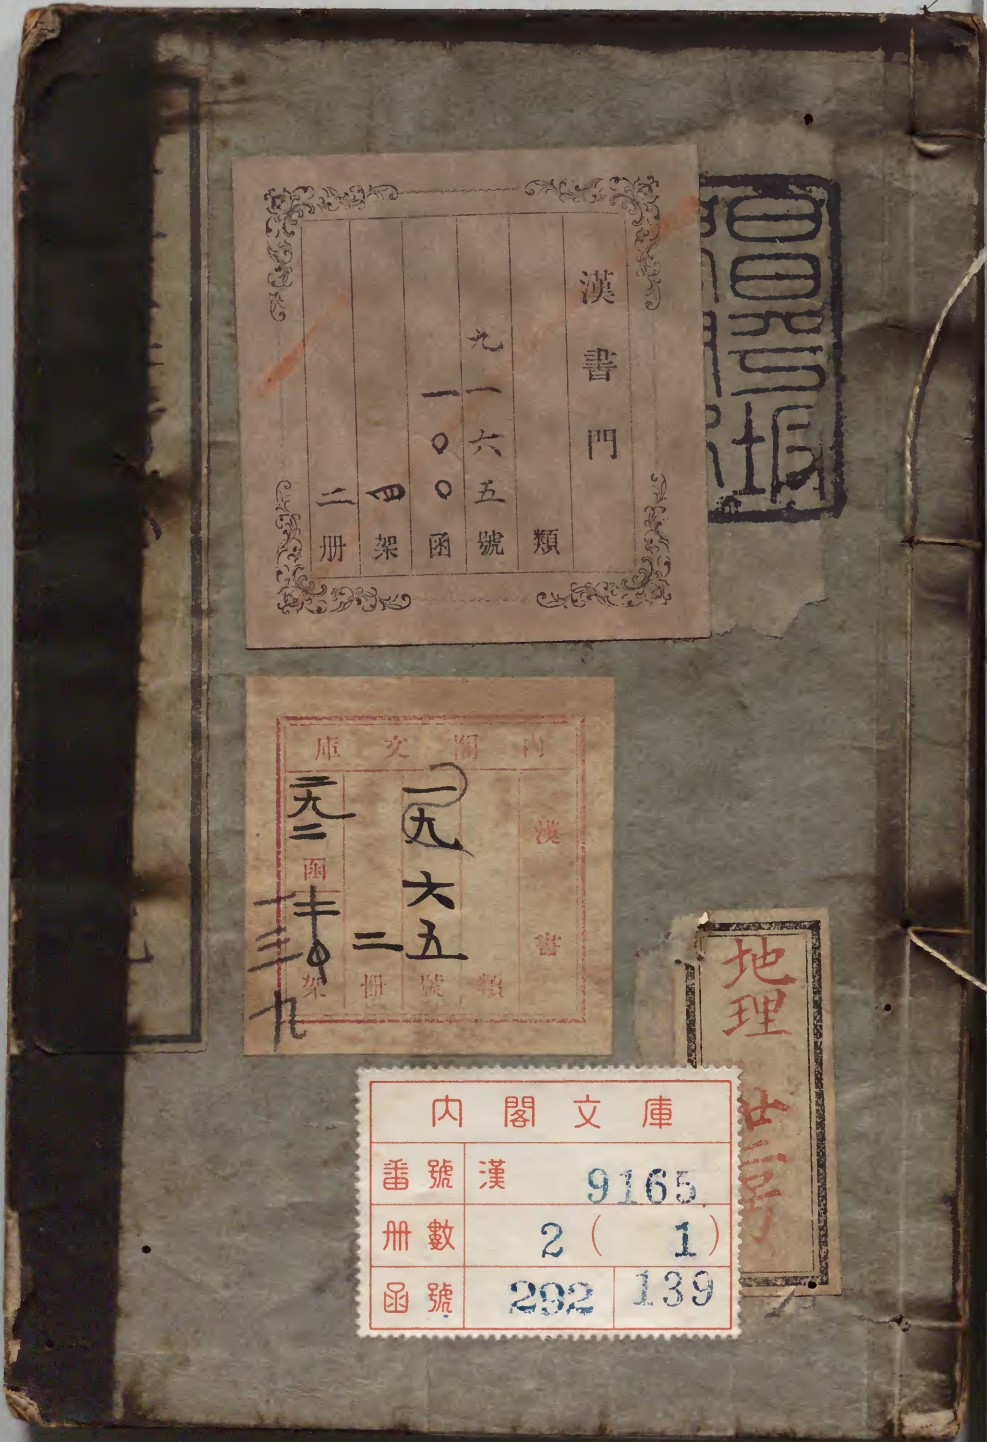 昌平坂
漢書門
類
九一六五號
一〇〇函
四架
二册
內閣文庫
漢書
類
一九六五號
二冊
二九二函
架
一三九
地理
內閣文庫
番號 漢 9165
冊數 2 ( 1 )
函號 292 139